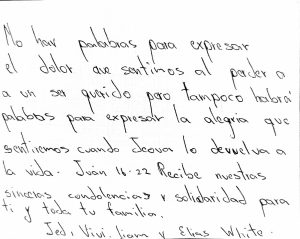 No hay palabras para expresar
el dolor que sentimos al perder a
a un ser querido pero tampoco habrá
palabras para expresar la alegria que
sentiremos cuando Jeova lo devuelva a
la vida. Juan 16:22 Recibe nuestras
sinceras condolencias y solidaridad para
ti y toda tu familia.
Jedi, Vivi, liam y Elias White.